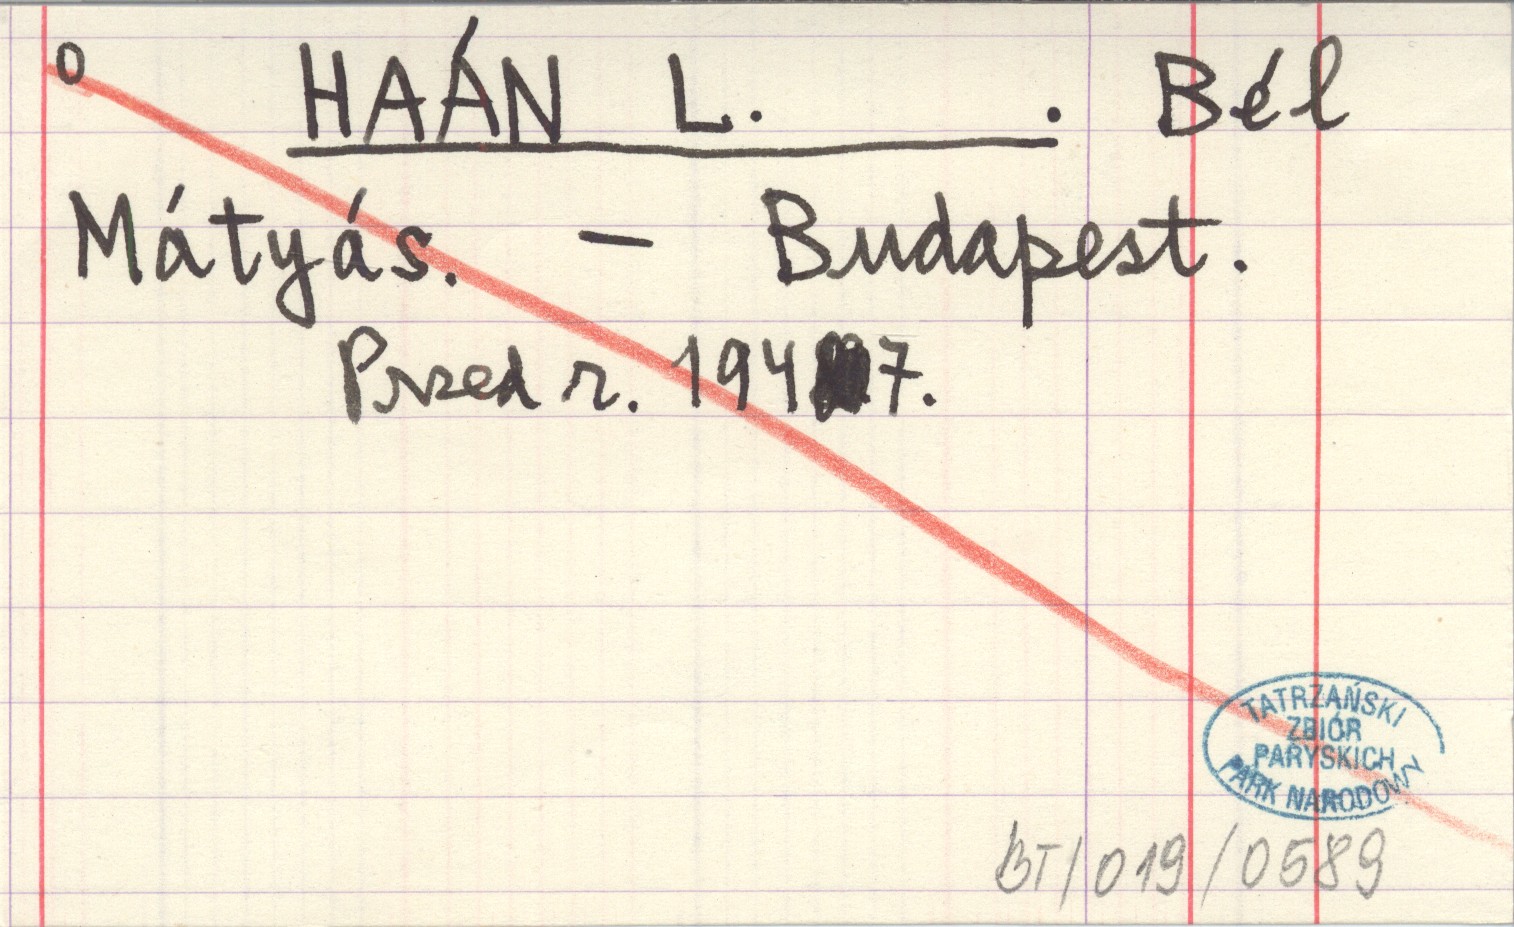 0
HAÁN L. . Bél
Mátyás. – Budapest.
Przed r. 1947.
TATRZAŃSKI
ZBIÓR
PARYSKICH
PARK NARODOWY
BT/019/0589